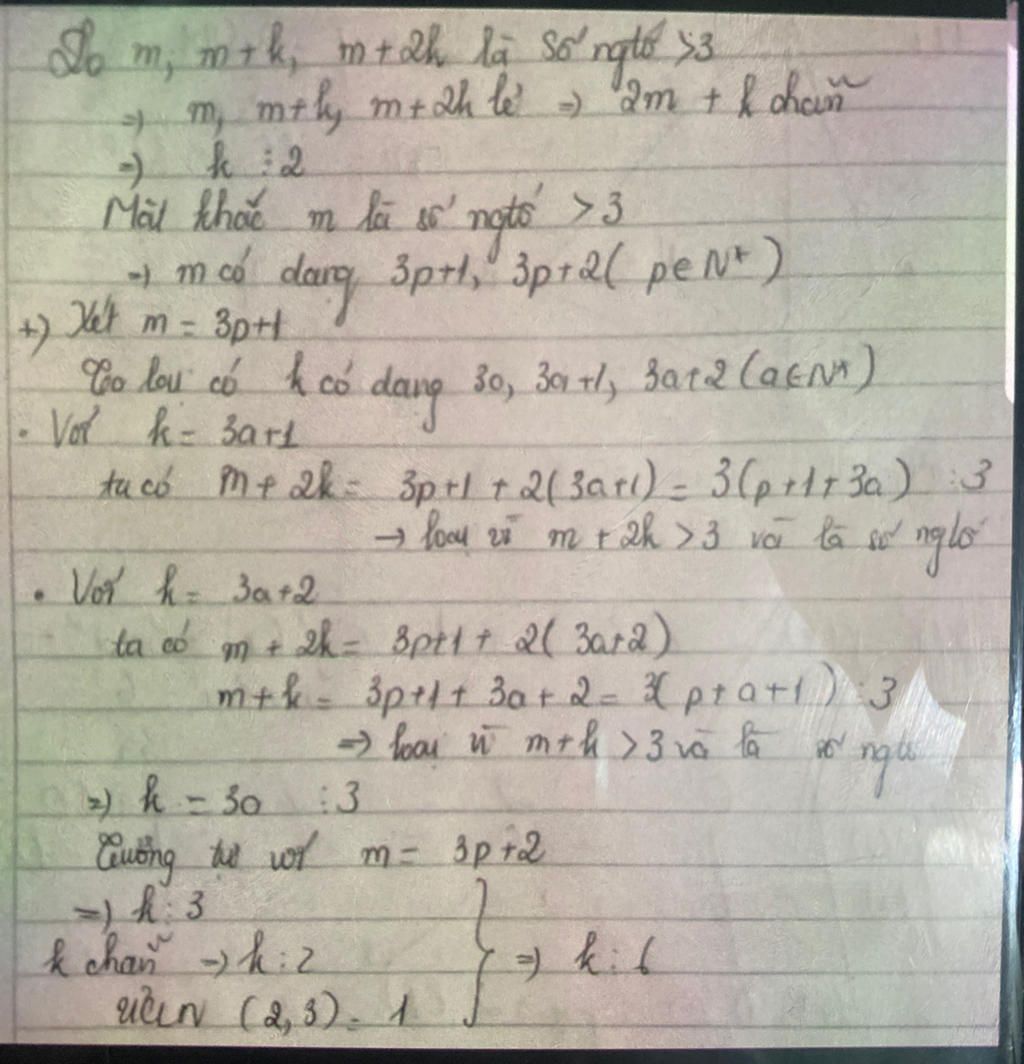 Do m, m+k, m+2k là số ngtố >3
=) m, m+k, m+2k lẻ =) 2m + k chẵn
=) k ⋮ 2
Mặt khác m là số ngtố > 3
=) m có dạng 3p+1, 3p+2 ( p∈N* )
+) Xét m = 3p+1
Ta lại có k có dạng 3a, 3a+1, 3a+2 (a∈N*)
. Với k = 3a+1
ta có m + 2k = 3p+1 + 2(3a+1) = 3(p+1+3a) ⋮3
→ loại vì m + 2k > 3 và là số ngtố
• Với k = 3a+2
ta có m + 2k = 3p+1 + 2( 3a+2)
m+k = 3p+1 + 3a + 2 = 3( p+a+1 ) ⋮ 3
=> loại vì m+k > 3 và là số ngtố
=) k = 3a ⋮ 3
Tương tự với m = 3p+2
=) k ⋮ 3
k chẵn → k ⋮ 2 } =) k ⋮ 6
ƯCLN (2,3) = 1